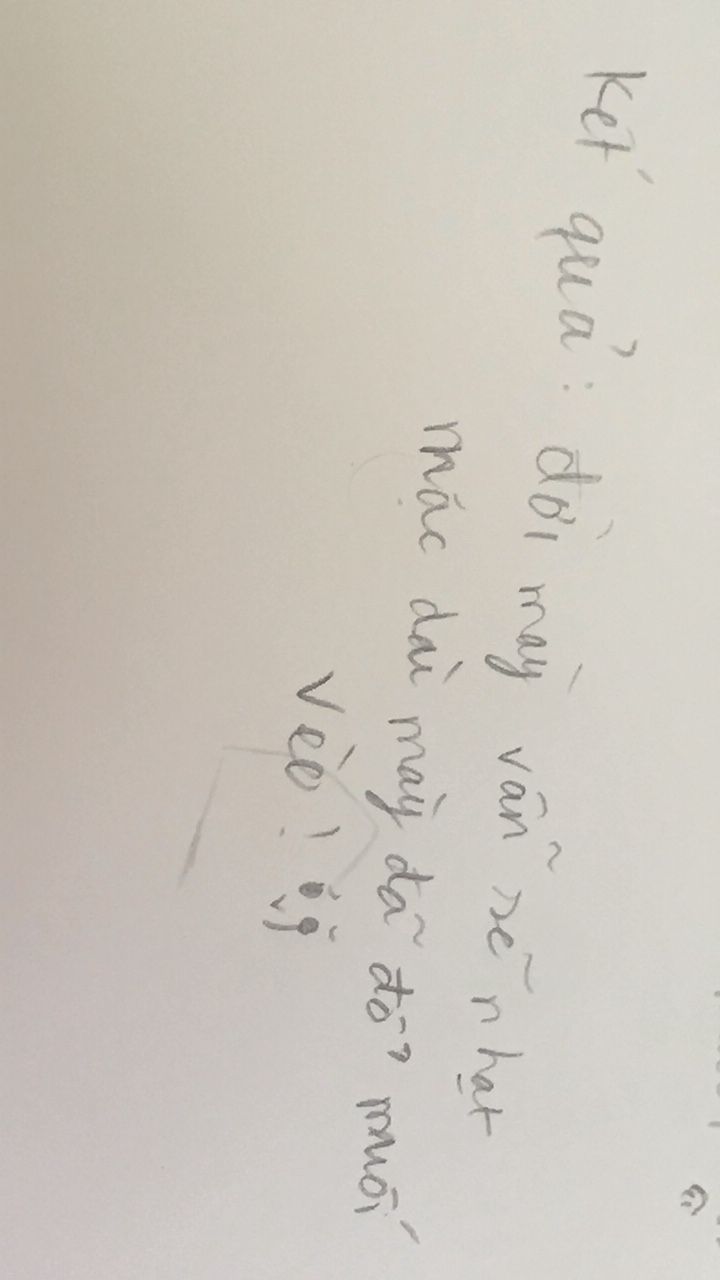 Kết quả: đời mày vẫn sẽ nhạt
mặc dù mày đã đổ muối
vèo!